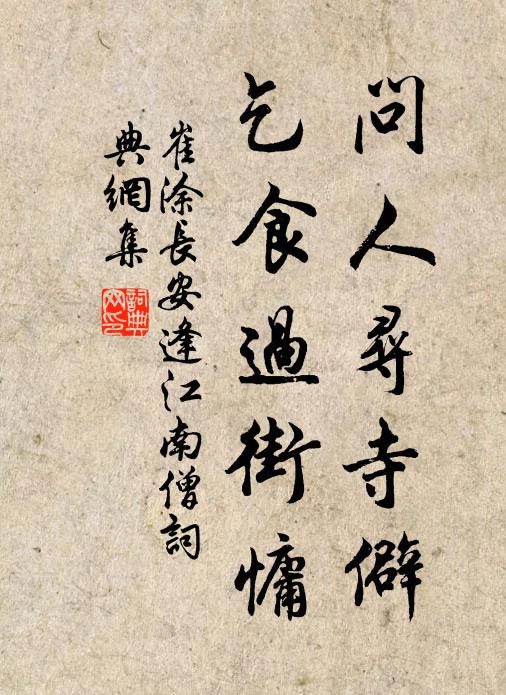 問人尋寺僻
乞食過街慵
崔涂長安逢江南僧詞
典網集
詞典
网印